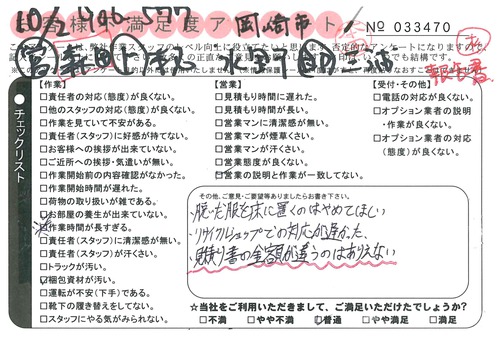 お客様満足度アンケート
岡崎市
No 033470
このアンケートは、弊社作業スタッフのレベル向上に役立てたいと思います。否定的なアンケートになりますので、
チェックリスト
【作業】
□責任者の対応(態度)が良くない。
□他のスタッフの対応(態度)が良くない。
□作業を見ていて不安がある。
□責任者(スタッフ)に好感が持てない。
□お客様への挨拶が出来ていない。
□ご近所への挨拶・気遣いが無い。
□作業開始前の内容確認がなかった。
□作業開始時間が遅れた。
□荷物の取り扱いが雑である。
□お部屋の養生が出来ていない。
□作業時間が長すぎる。
□責任者(スタッフ)に清潔感が無い。
□責任者(スタッフ)が汗くさい。
□トラックが汚い。
□梱包資材が汚い。
□運転が不安(下手)である。
□靴下の履き替えをしてない。
□スタッフにやる気がみられない。
【営業】
□見積もり時間に遅れた。
□見積もり時間が長い。
□営業マンに清潔感が無い。
□営業マンが煙草くさい。
□営業マンが汗くさい。
□営業態度が良くない。
□営業の説明と作業が一致してない。
【受付・その他】
□電話の対応が良くない。
□オプション業者の説明
・作業が良くない。
□オプション業者の対応
(態度)が良くない。
その他、ご意見・ご要望等ありましたらお書き下さい。
・脱いだ服を床に置くのはやめてほしい
・リサイクルショップでの対応が遅かった、
・見積り書の金額が違うのはありえない
☆当社をご利用いただきまして、ご満足いただけたでしょうか?
□不満 □やや不満 □普通 □やや満足 □満足